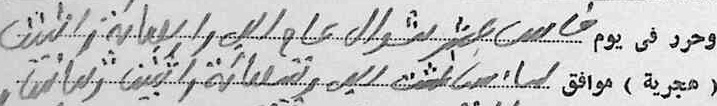 وحرر فى يوم خامس عشر شوال عام الف واربعمائة واثنين
( هجرية ) موافق اغسطس الف وتسعمائة واثنين وثمانين